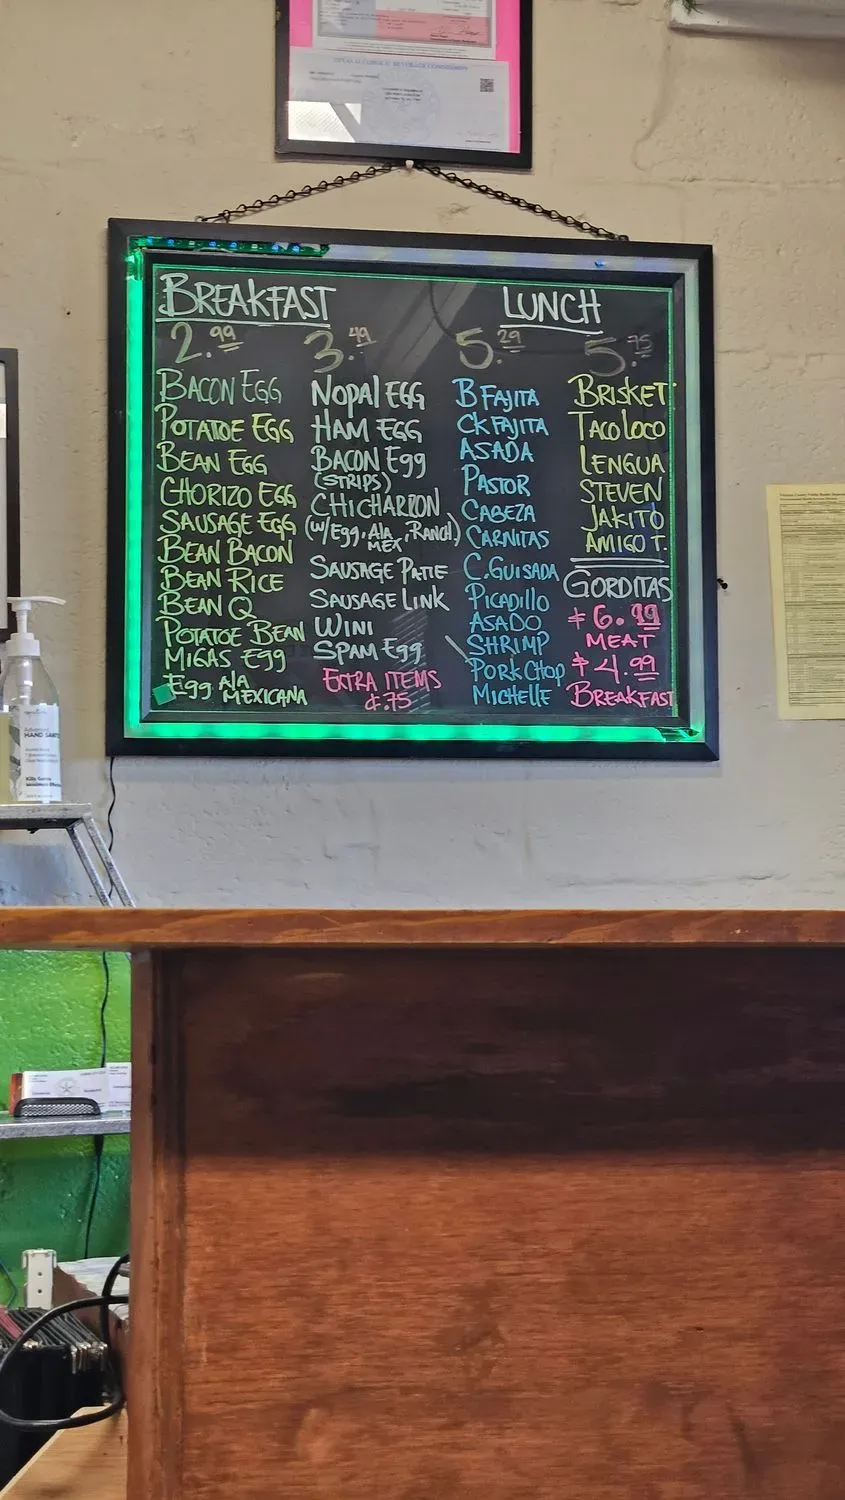 TEXAS ALCOHOLIC BEVERAGE COMMISSION
BREAKFAST
2.99
BACON EGG
POTATOE EGG
BEAN EGG
CHORIZO EGG
SAUSAGE EGG
BEAN BACON
BEAN RICE
BEAN Q
POTATOE BEAN
MIGAS Egg
Egg A LA MEXICANA
3.49
NOPAL EGG
HAM EGG
BACON Egg
(STRIPS)
CHICHARRON
(W/Egg, A LA MEX, RANCH)
SAUSAGE PATIE
SAUSAGE LINK
WINI
SPAM Egg
EXTRA ITEMS
¢.75
LUNCH
5.29
B FAJITA
CK FAJITA
ASADA
PASTOR
CABEZA
CARNITAS
C. GUISADA
PICADILLO
ASADO
SHRIMP
PORK CHOP
MICHELLE
5.75
BRISKET
TACO LOCO
LENGUA
STEVEN
JAKITO
AMIGO T.
GORDITAS
$6.99
MEAT
$4.99
BREAKFAST
Advanced
HAND SANITIZER